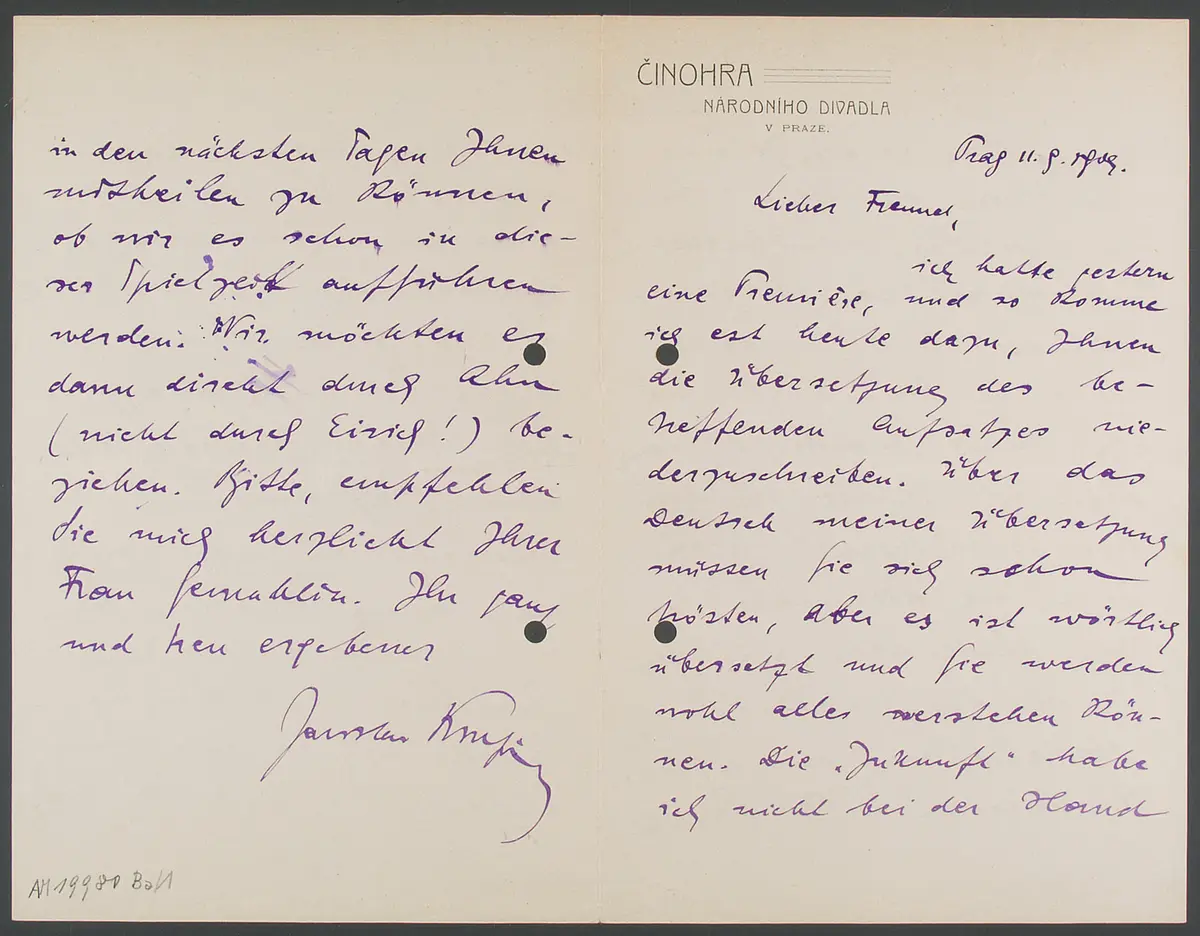 ČINOHRA
NÁRODNÍHO DIVADLA
V PRAZE.
Prag 11. 9. 1909.
Lieber Freund,
ich hatte gestern
eine Première, und so komme
ich est heute dazu, Ihnen
die Übersetzung des be-
treffenden Aufsatzes nie-
derzuschreiben. Über das
Deutsch meiner Übersetzung
müssen Sie sich schon
trösten, aber es ist wörtlich
übersetzt und Sie werden
wohl alles verstehen kön-
nen. Die „Zukunft" habe
ich nicht bei der Hand
in den nächsten Tagen Ihnen
mittheilen zu können,
ob wir es schon in die-
ser Spielzeit aufführen
werden. Wir möchten es
dann direkt durch Ahn
(nicht durch Eirich!) be-
ziehen. Bitte, empfehlen
Sie mich herzlichst Ihrer
Frau Gemahlin. Ihr ganz
und treu ergebener
Jaroslav
AM 19980 Ba/1